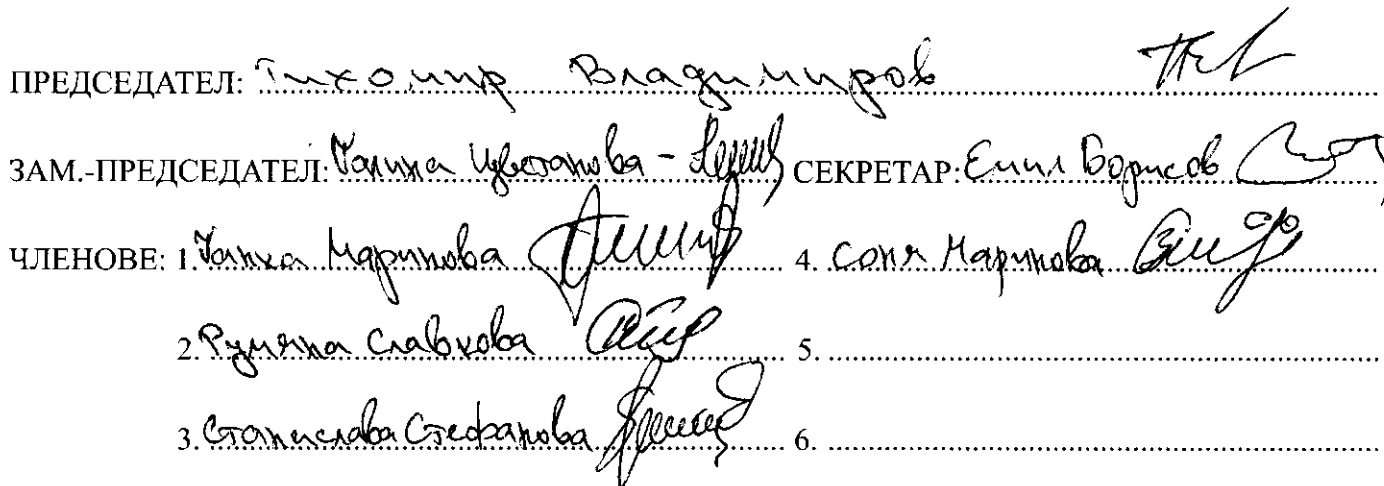 ПРЕДСЕДАТЕЛ: Тихомир Владимиров
ЗАМ.-ПРЕДСЕДАТЕЛ: Галина Цветанова - СЕКРЕТАР: Емил Борисов
ЧЛЕНОВЕ: 1. Ванка Маринова 4. Соня Маринова
2. Румяна Славкова 5.
3. Станислава Стефанова 6.